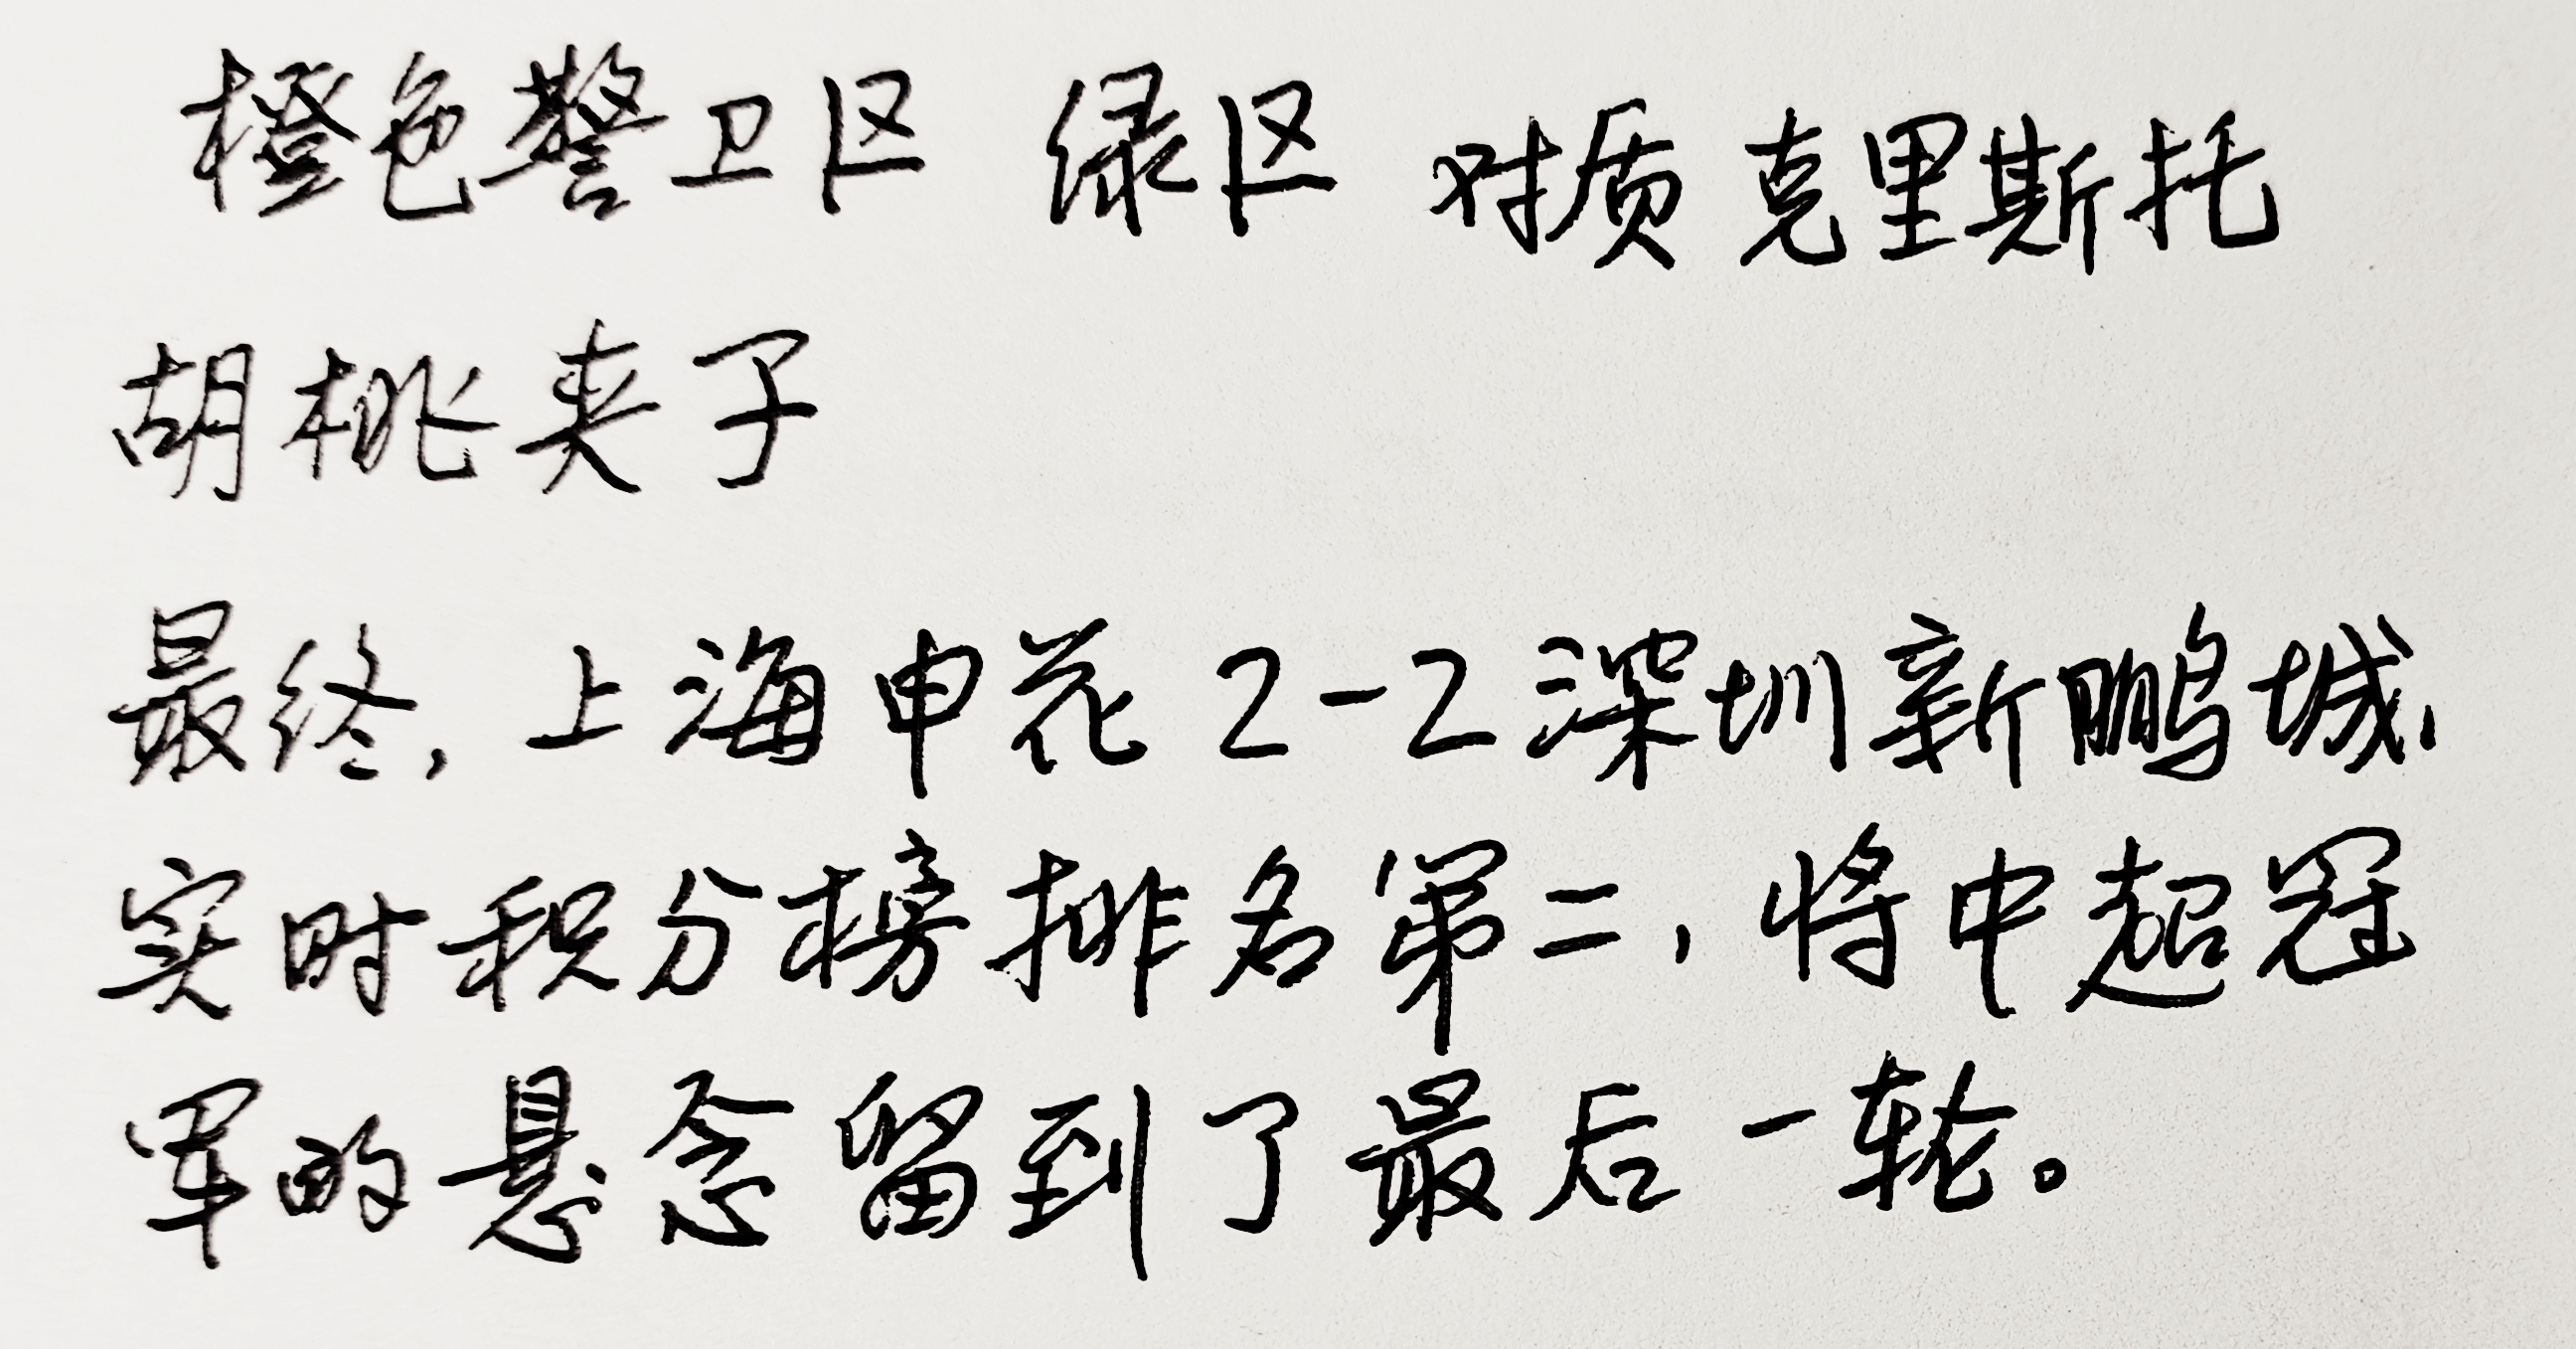 橙色警卫区 绿区 对质克里斯托
胡桃夹子
最终，上海申花2-2深圳新鹏城，
实时积分榜排名第二，将中超冠
军的悬念留到了最后一轮。